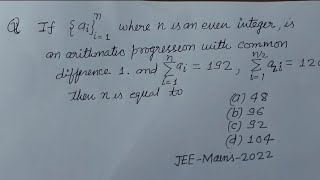 Q If {aᵢ}ⁿᵢ₌₁ where n is an even integer, is
an arithmatic progression with common
difference 1. and ∑ⁿᵢ₌₁ aᵢ = 192, ∑ⁿ/²ᵢ₌₁ a₂ᵢ = 120
Then n is equal to
(a) 48
(b) 96
(c) 92
(d) 104
JEE-Mains-2022